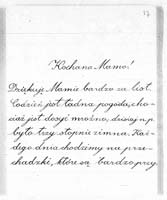 17
Kochana Mamo!
Dziękuję Mamie bardzo za list.
Codzień jest ładna pogoda, cho-
ciaż jest dosyć mroźno, dzisiaj n.p.
było trzy stopnie zimna. Każ-
dego dnia chodzimy na prze-
chadzki, które są bardzo przy